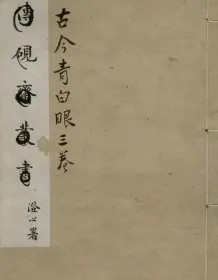 古今青白眼三卷
傳硯齋叢書
澄心署